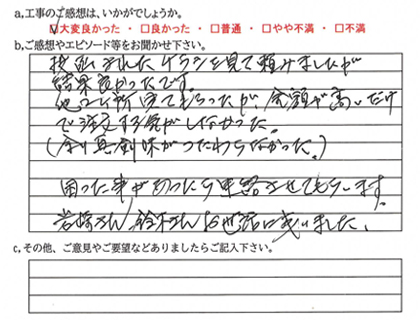 a,工事のご感想は、いかがでしょうか。
☑大変良かった ・ □良かった ・ □普通 ・ □やや不満 ・ □不満
b,ご感想やエピソード等をお聞かせ下さい。
投函されたチラシを見て頼みましたが
結果良かったです。
他二ケ所見てもらったが、金額が高いだけ
で注文する気がしなかった。
(余り真剣味がつたわらなかった。)
困った事が有ったら連絡させてもらいます。
岩崎さん、鈴木さんお世話に成いました。
c,その他、ご意見やご要望などありましたらご記入下さい。